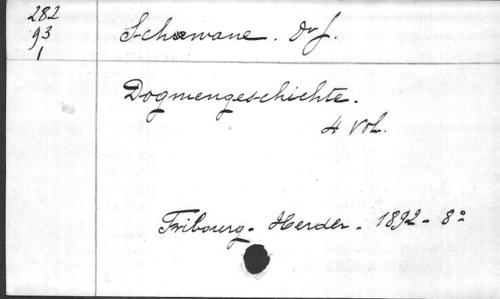 282
93
1
Schawane. Dr J.
Dogmengeschichte.
4 Vol.
Fribourg. Herder. 1892 - 8°